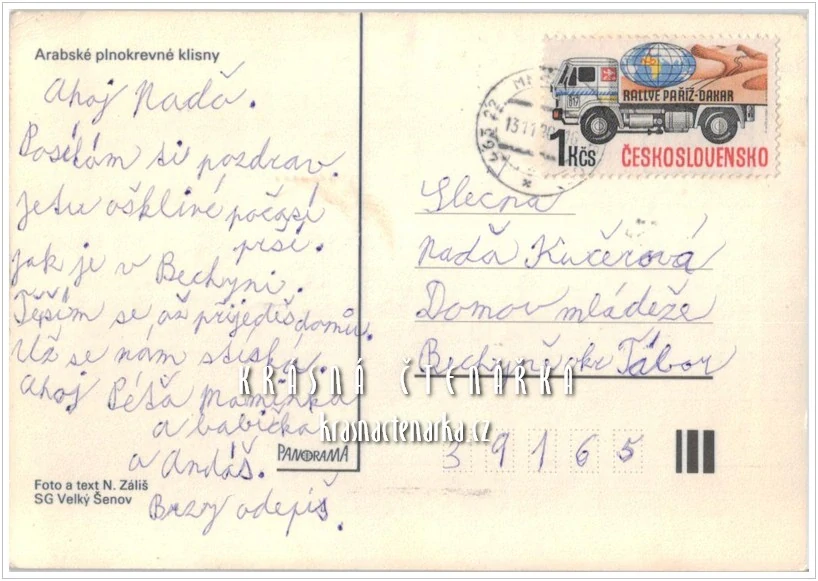 Arabské plnokrevné klisny
Ahoj Naďo.
Posílám ti pozdrav.
je tu ošklivé počasí
prší.
jak je v Bechyni.
Těším se až přijedeš domů.
Už se nám stíská.
ahoj Péťa Maminka
a babička
a Andáš.
Brzy odepiš.
Foto a text N. Záliš
SG Velký Šenov
PANORAMA
463 22
13.11.
RALLYE PAŘÍŽ-DAKAR
1 Kčs
ČESKOSLOVENSKO
Slečna
Naďa Kučerová
Domov mládeže
Bechyně okr Tábor
39165
KRÁSNÁ ČTENÁŘKA
krasnactenarka.cz